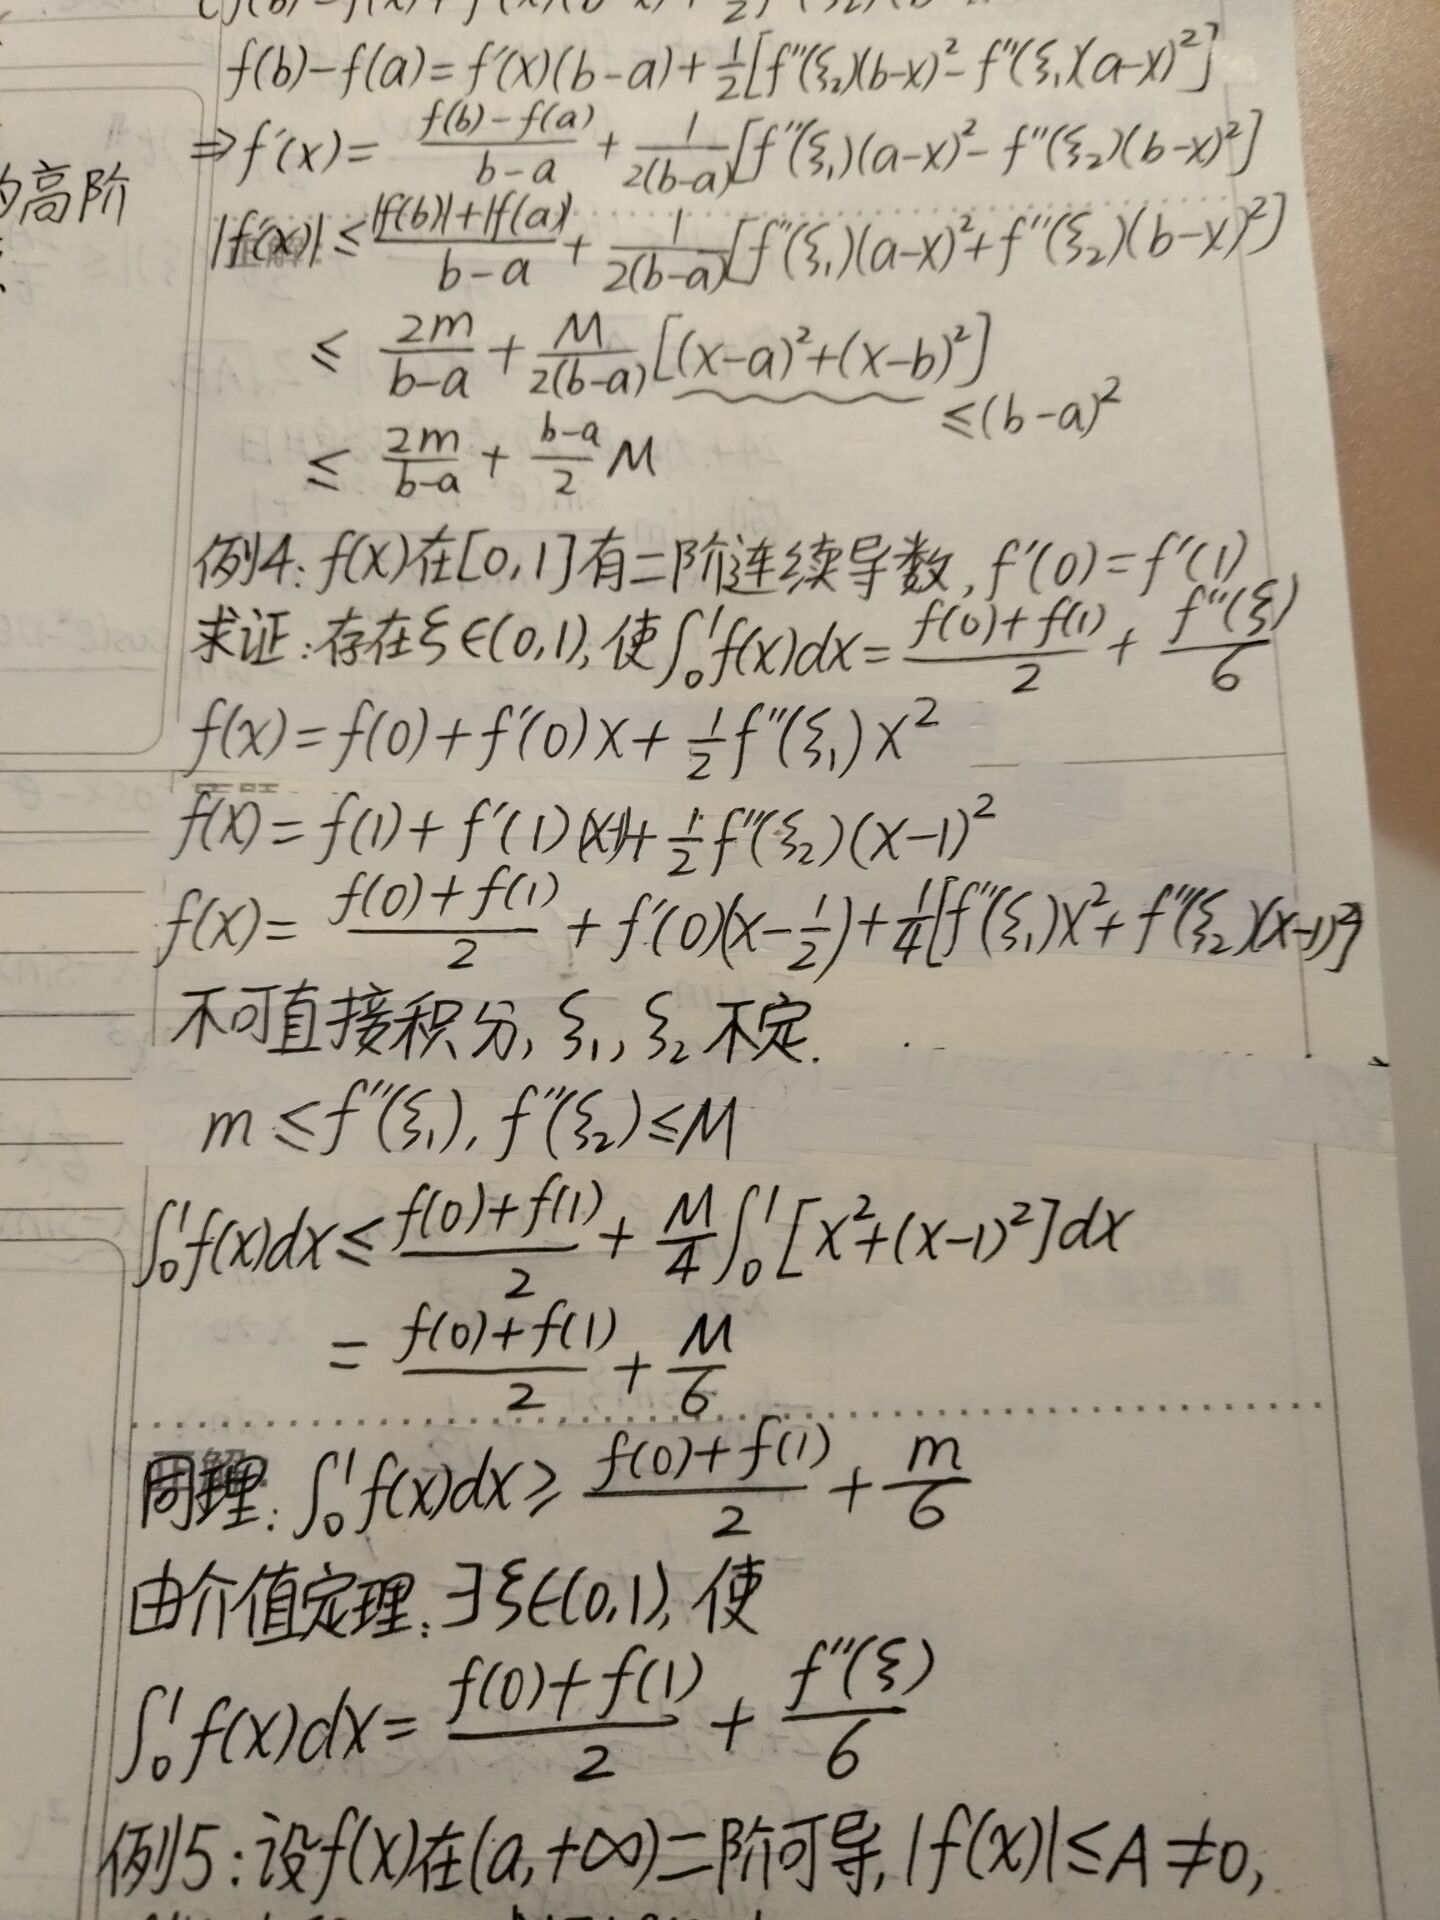 f(b)-f(a)=f'(x)(b-a)+1/2[f''(ξ₂)(b-x)²-f''(ξ₁)(a-x)²]
的高阶
⇒f'(x)=(f(b)-f(a))/(b-a)+1/(2(b-a))[f''(ξ₁)(a-x)²-f''(ξ₂)(b-x)²]
|f'(x)|≤(|f(b)|+|f(a)|)/(b-a)+1/(2(b-a))[f''(ξ₁)(a-x)²+f''(ξ₂)(b-x)²]
≤2m/(b-a)+M/(2(b-a))[(x-a)²+(x-b)²]
≤(b-a)²
≤2m/(b-a)+(b-a)/2 M
例4:f(x)在[0,1]有二阶连续导数,f'(0)=f'(1)
求证:存在ξ∈(0,1),使∫₀¹f(x)dx=(f(0)+f(1))/2+f''(ξ)/6
f(x)=f(0)+f'(0)x+1/2f''(ξ₁)x²
f(x)=f(1)+f'(1)(x-1)+1/2f''(ξ₂)(x-1)²
f(x)=(f(0)+f(1))/2+f'(0)(x-1/2)+1/4[f''(ξ₁)x²+f''(ξ₂)(x-1)²]
不可直接积分,ξ₁,ξ₂不定.
m≤f''(ξ₁),f''(ξ₂)≤M
∫₀¹f(x)dx≤(f(0)+f(1))/2+M/4∫₀¹[x²+(x-1)²]dx
=(f(0)+f(1))/2+M/6
同理:∫₀¹f(x)dx≥(f(0)+f(1))/2+m/6
由介值定理:∃ξ∈(0,1),使
∫₀¹f(x)dx=(f(0)+f(1))/2+f''(ξ)/6
例5:设f(x)在(a,+∞)二阶可导,|f(x)|≤A≠0,